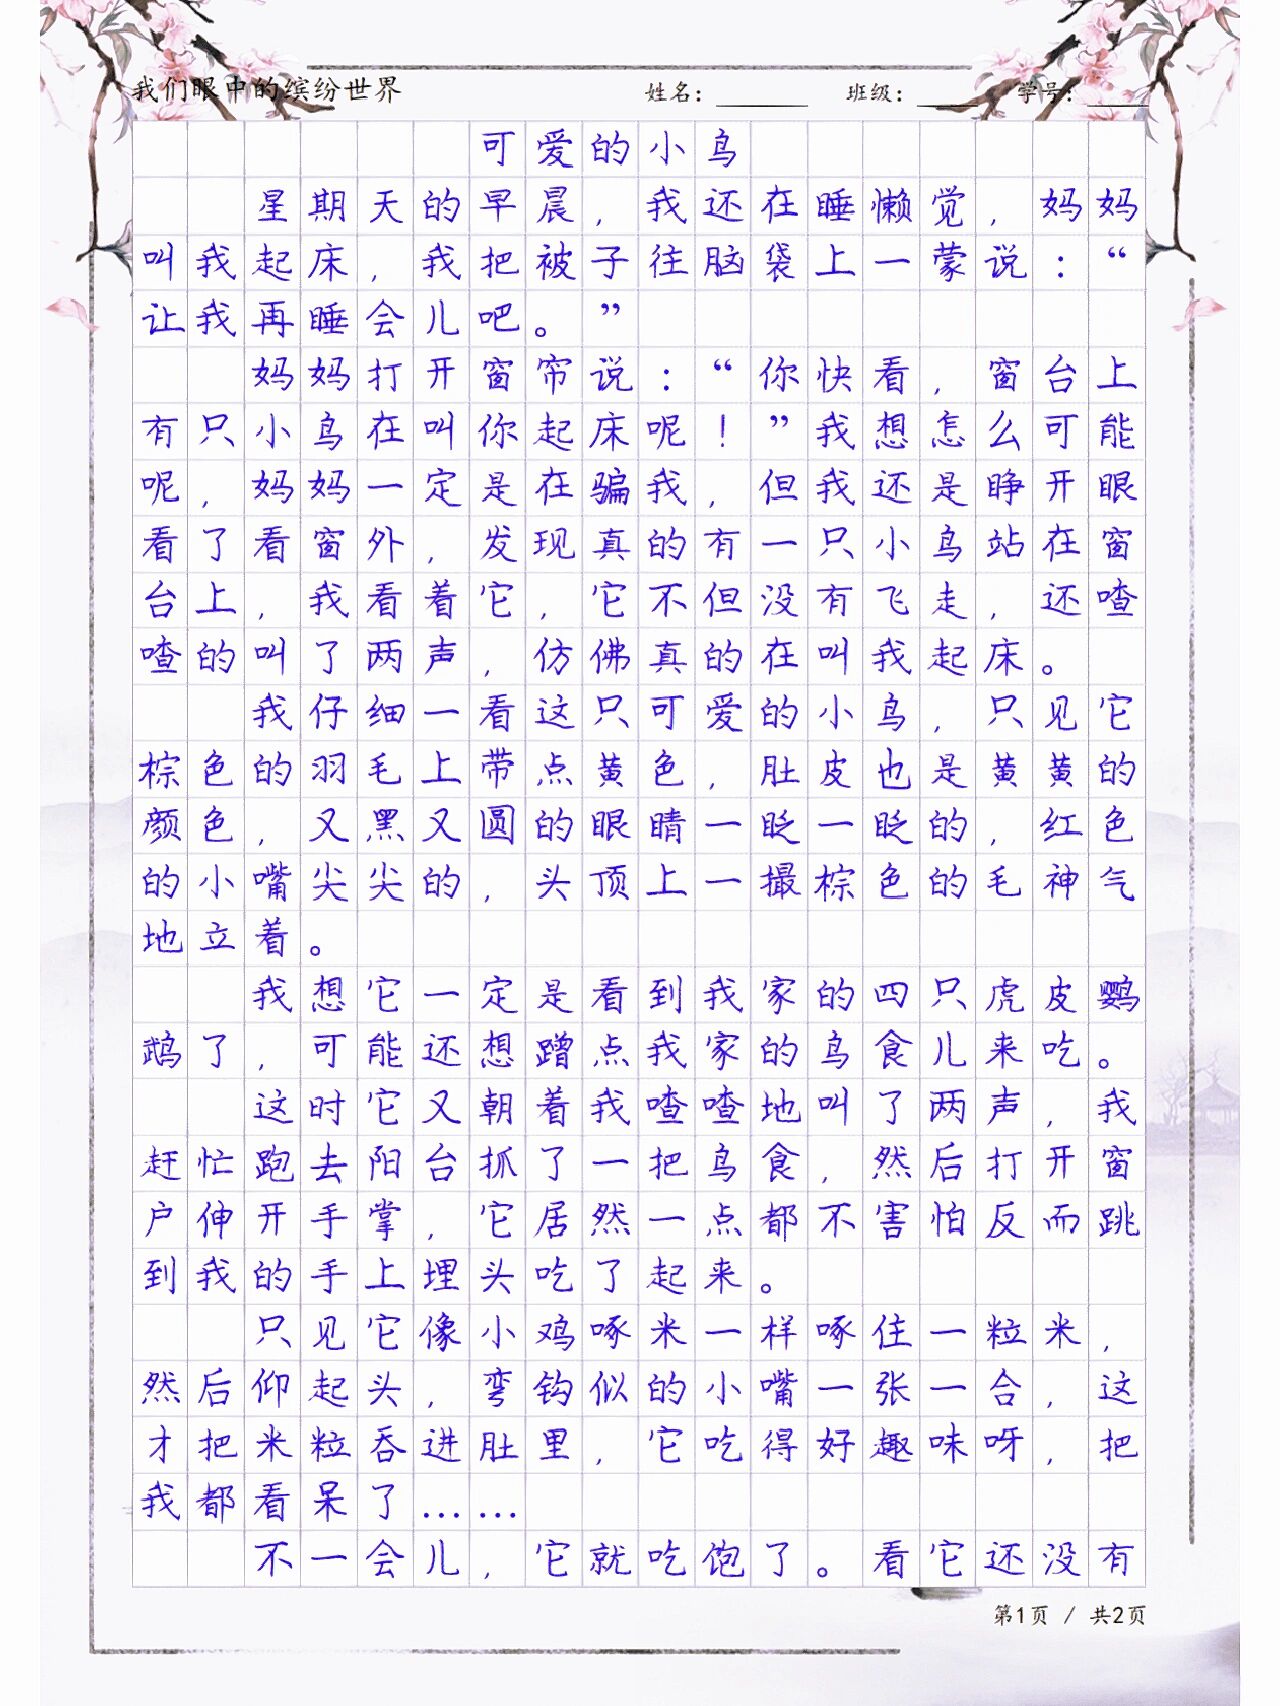 我们眼中的缤纷世界 姓名： 班级： 学号：
可爱的小鸟
星期天的早晨，我还在睡懒觉，妈妈
叫我起床，我把被子往脑袋上一蒙说：“
让我再睡会儿吧。”
妈妈打开窗帘说：“你快看，窗台上
有只小鸟在叫你起床呢！”我想怎么可能
呢，妈妈一定是在骗我，但我还是睁开眼
看了看窗外，发现真的有一只小鸟站在窗
台上，我看着它，它不但没有飞走，还喳
喳的叫了两声，仿佛真的在叫我起床。
我仔细一看这只可爱的小鸟，只见它
棕色的羽毛上带点黄色，肚皮也是黄黄的
颜色，又黑又圆的眼睛一眨一眨的，红色
的小嘴尖尖的，头顶上一撮棕色的毛神气
地立着。
我想它一定是看到我家的四只虎皮鹦
鹉了，可能还想蹭点我家的鸟食儿来吃。
这时它又朝着我喳喳地叫了两声，我
赶忙跑去阳台抓了一把鸟食，然后打开窗
户伸开手掌，它居然一点都不害怕反而跳
到我的手上埋头吃了起来。
只见它像小鸡啄米一样啄住一粒米，
然后仰起头，弯钩似的小嘴一张一合，这
才把米粒吞进肚里，它吃得好趣味呀，把
我都看呆了……
不一会儿，它就吃饱了。看它还没有
第1页 / 共2页